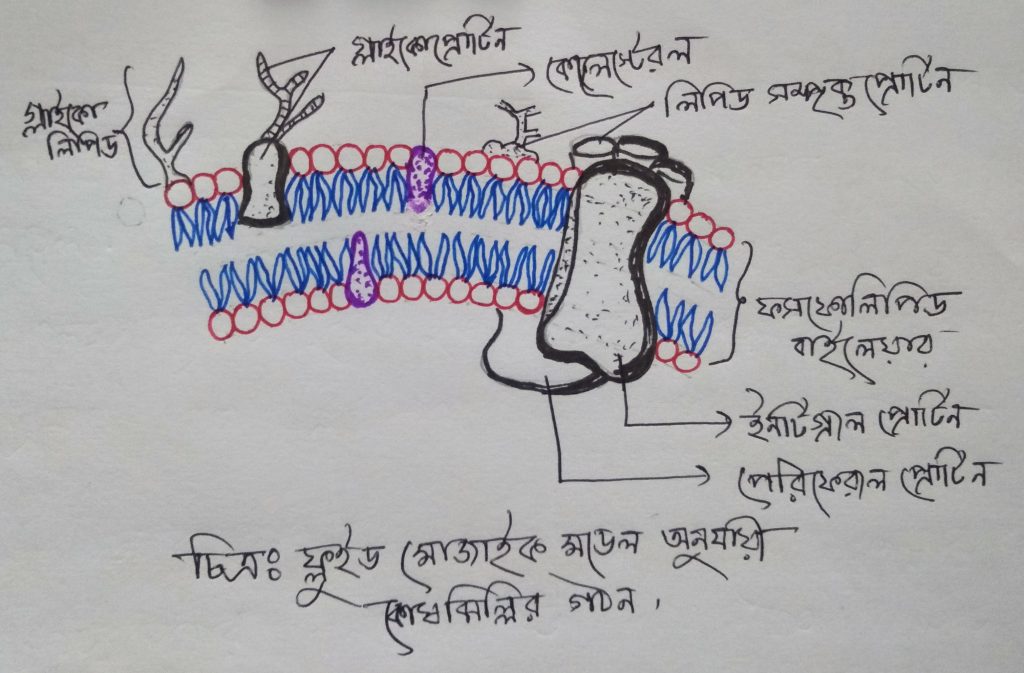 গ্লাইকোপ্রোটিন
কোলেস্টেরল
লিপিড সম্পৃক্ত প্রোটিন
গ্লাইকো
লিপিড
ফসফোলিপিড
বাইলেয়ার
ইনটিগ্রাল প্রোটিন
পেরিফেরাল প্রোটিন
চিত্রঃ ফ্লুইড মোজাইক মডেল অনুযায়ী
কোষঝিল্লির গঠন।